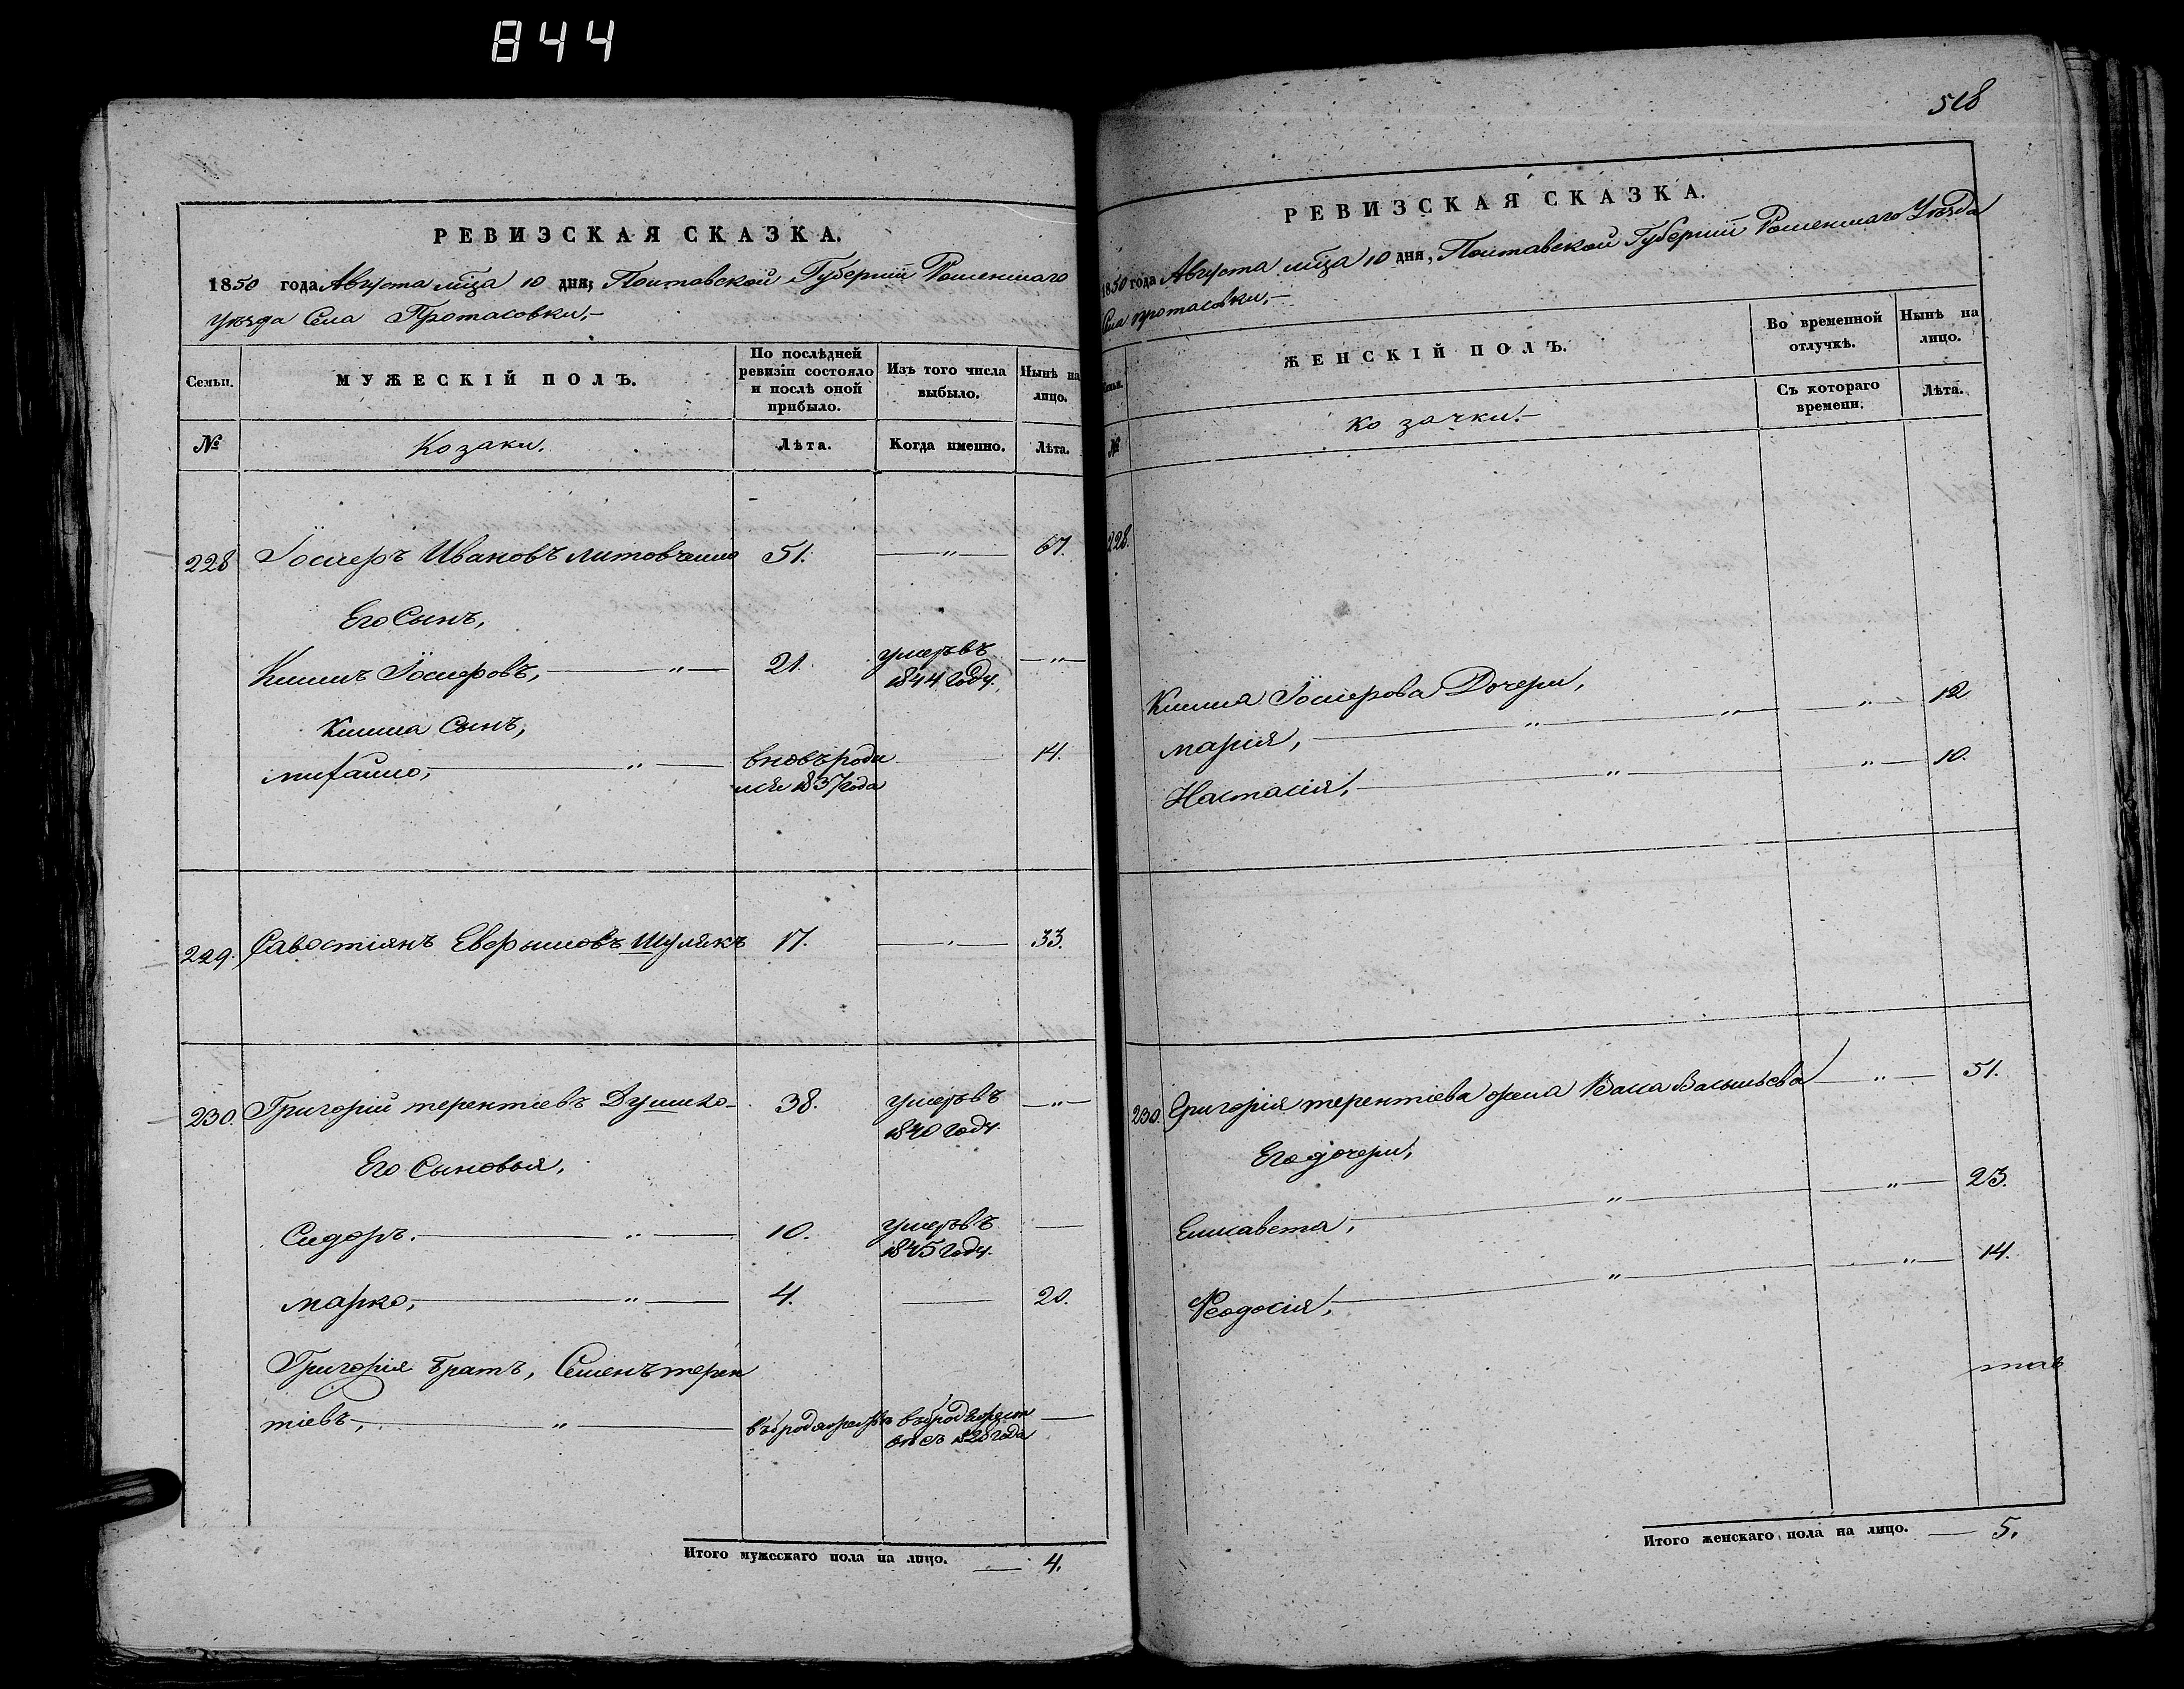 844
РЕВИЗСКАЯ СКАЗКА.
1850 года Августа мца 10 дня, Полтавской Губернии Роменскаго
Уезда Села Протасовки,
Семьи. МУЖЕСКІЙ ПОЛЪ. По послѣдней ревизіи состояло и послѣ оной прибыло. Изъ того числа выбыло. Нынѣ на лицо.
№ Козаки. Лѣта. Когда именно. Лѣта.
228 Ивановъ Литовченко 51. 67.
Его Сынъ,
21. умеръ въ
1844 году.
Сынъ,
Михайло, вновь роди 14.
лся 1837 года
229. Савостіянъ Шулякъ 17. 33.
230. Григорій Терентіевъ Душко 38. умеръ въ
1840 году.
Его Сыновья,
Сидоръ. 10. умеръ въ
1845 году.
Марко, 4. 20.
Григорія братъ, Семенъ Терен
тіевъ,
1820 года
Итого мужескаго пола на лицо. 4.
518
РЕВИЗСКАЯ СКАЗКА.
1850 года Августа мца 10 дня, Полтавской Губернии Роменскаго Уезда
Села Протасовки,
Семьи. ЖЕНСКІЙ ПОЛЪ. Во временной отлучкѣ. Нынѣ на лицо.
Съ котораго времени. Лѣта.
№ Козачки.
228.
Дочери,
Марія, 12
Настасія, 10.
230. Григорія Терентіева жена Васильева 51.
Его дочери,
Елисавета, 23.
Феодосія, 14.
Итого женскаго пола на лицо. 5.